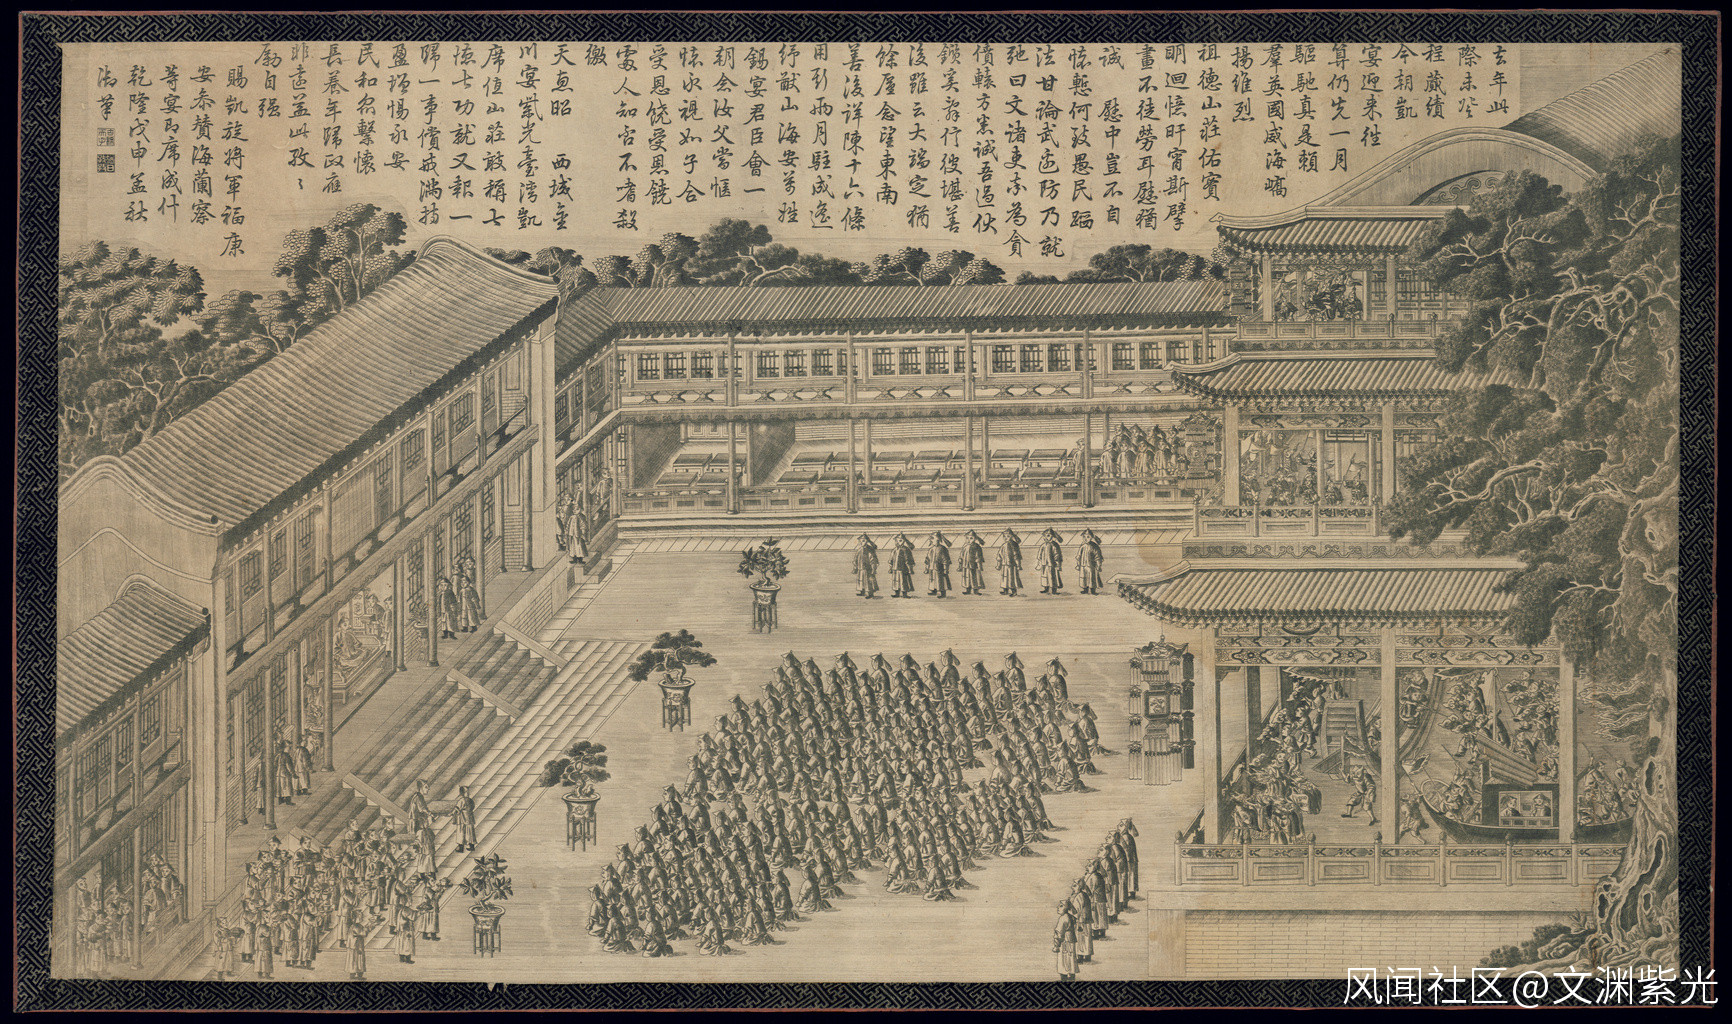 去年此
際未登
程蕆績
今朝凱
宴迎来徃
算仍先一月
驅馳真是賴
羣英國威海嶠
揚維烈
祖德山莊佑實
明迴憶旰宵斯擘
畫不徒勞耳慰猶
誠 慰中豈不自
懐慙何致愚民蹈
法甘論武逺防乃就
弛曰文諸吏奈為貪
僨轅方悉誠吾過伏
鑕奚辭行彼堪善
後雖云大端定猶
餘廑念望東南
善後詳陳十六條
用引兩月駐成
紓猷山海安萬姓
錫宴君臣會一
朝念汝父當愜
懐永視如子合
受恩饒受恩饒
處人知否不殺
繳
天恵昭 西域金
川宴紫光臺灣凱
席值山莊敢稱七
徳七功就又報一
歸一事償戒滿持
盈增惕永安
民和衆繫懐
長養年歸政應
非逺益此孜〻
勵自強
賜凱旋將軍福康
安叅贊海蘭察
等宴即席成什
乾隆戊申孟秋
御筆
风闻社区@文渊紫光